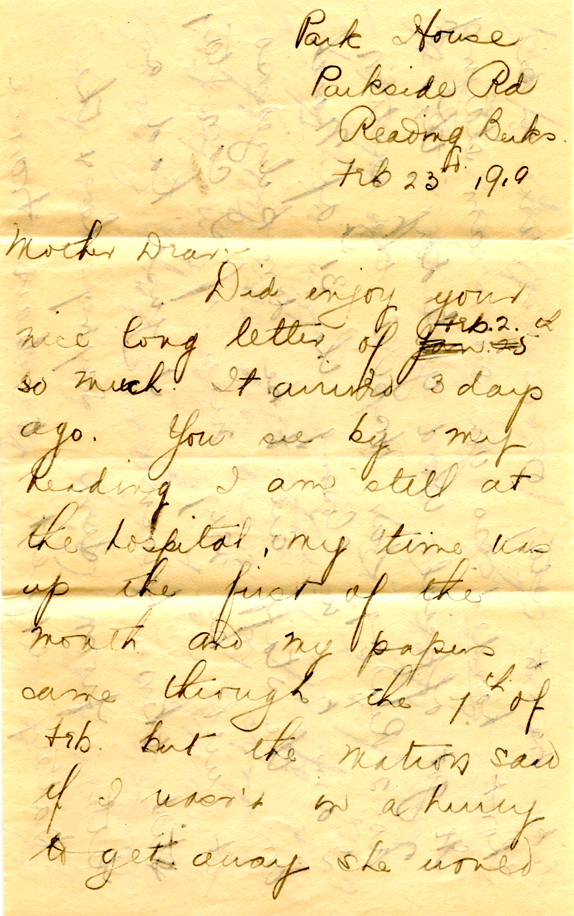 Park House
Parkside Rd
Reading Berks.
Feb 23rd 1919
Mother Dear:-
Did enjoy your
nice long letter of Feb. 2. &
so much. It arrived 3 days
ago. You see by my
heading I am still at
the hospital, my time was
up the first of the
month and my papers
came through the 7th of
Feb. but the matron said
if I wasn't in a hurry
to get away she would